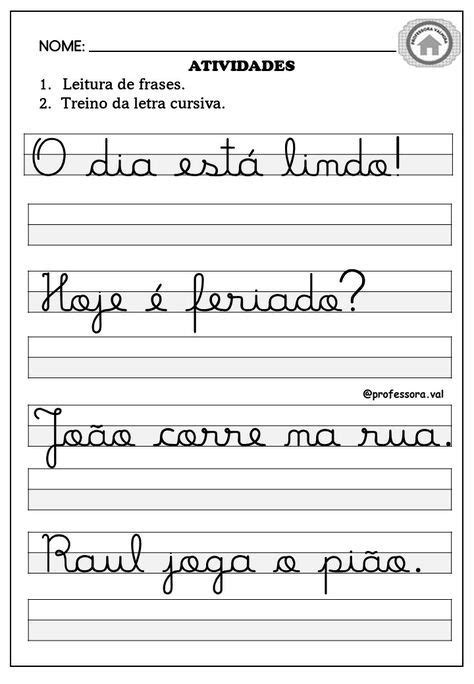 PROFESSORA VALMIRA
NOME:
ATIVIDADES
1. Leitura de frases.
2. Treino da letra cursiva.
O dia está lindo!
Hoje é feriado?
@professora.val
João corre na rua.
Raul joga o pião.